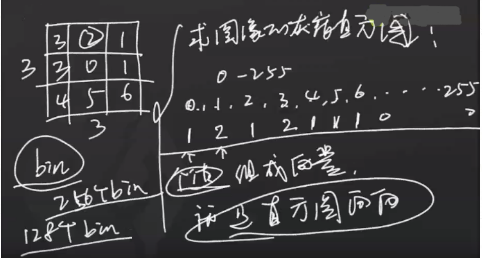 3 2 1
3 3 0 1
4 5 6
3
bin
256个bin
128个bin
求图像的灰度直方图:
0-255
0, 1, 2, 3, 4, 5, 6, ...... 255
1 2 1 2 1 1 1 0 0
组成向量,
就是直方图向